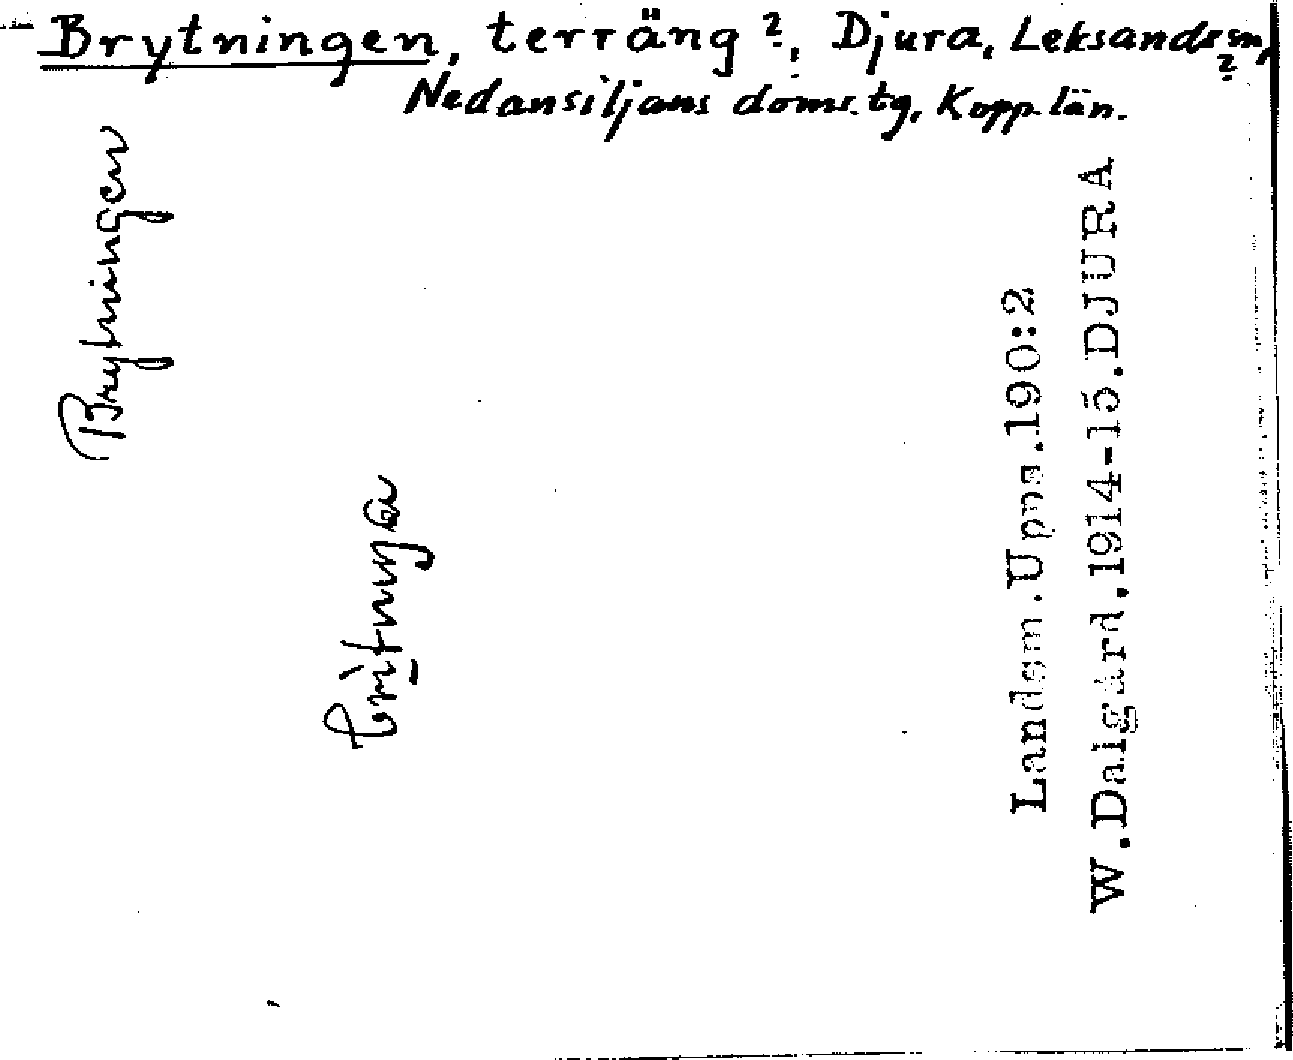 Brytningen, terräng?, Djura, Leksands sn,
Nedansiljans doms. tg, Kopp. län.
Brytningen
Landsm.Upps.190:2
W.Dalgård.1914-15.DJURA